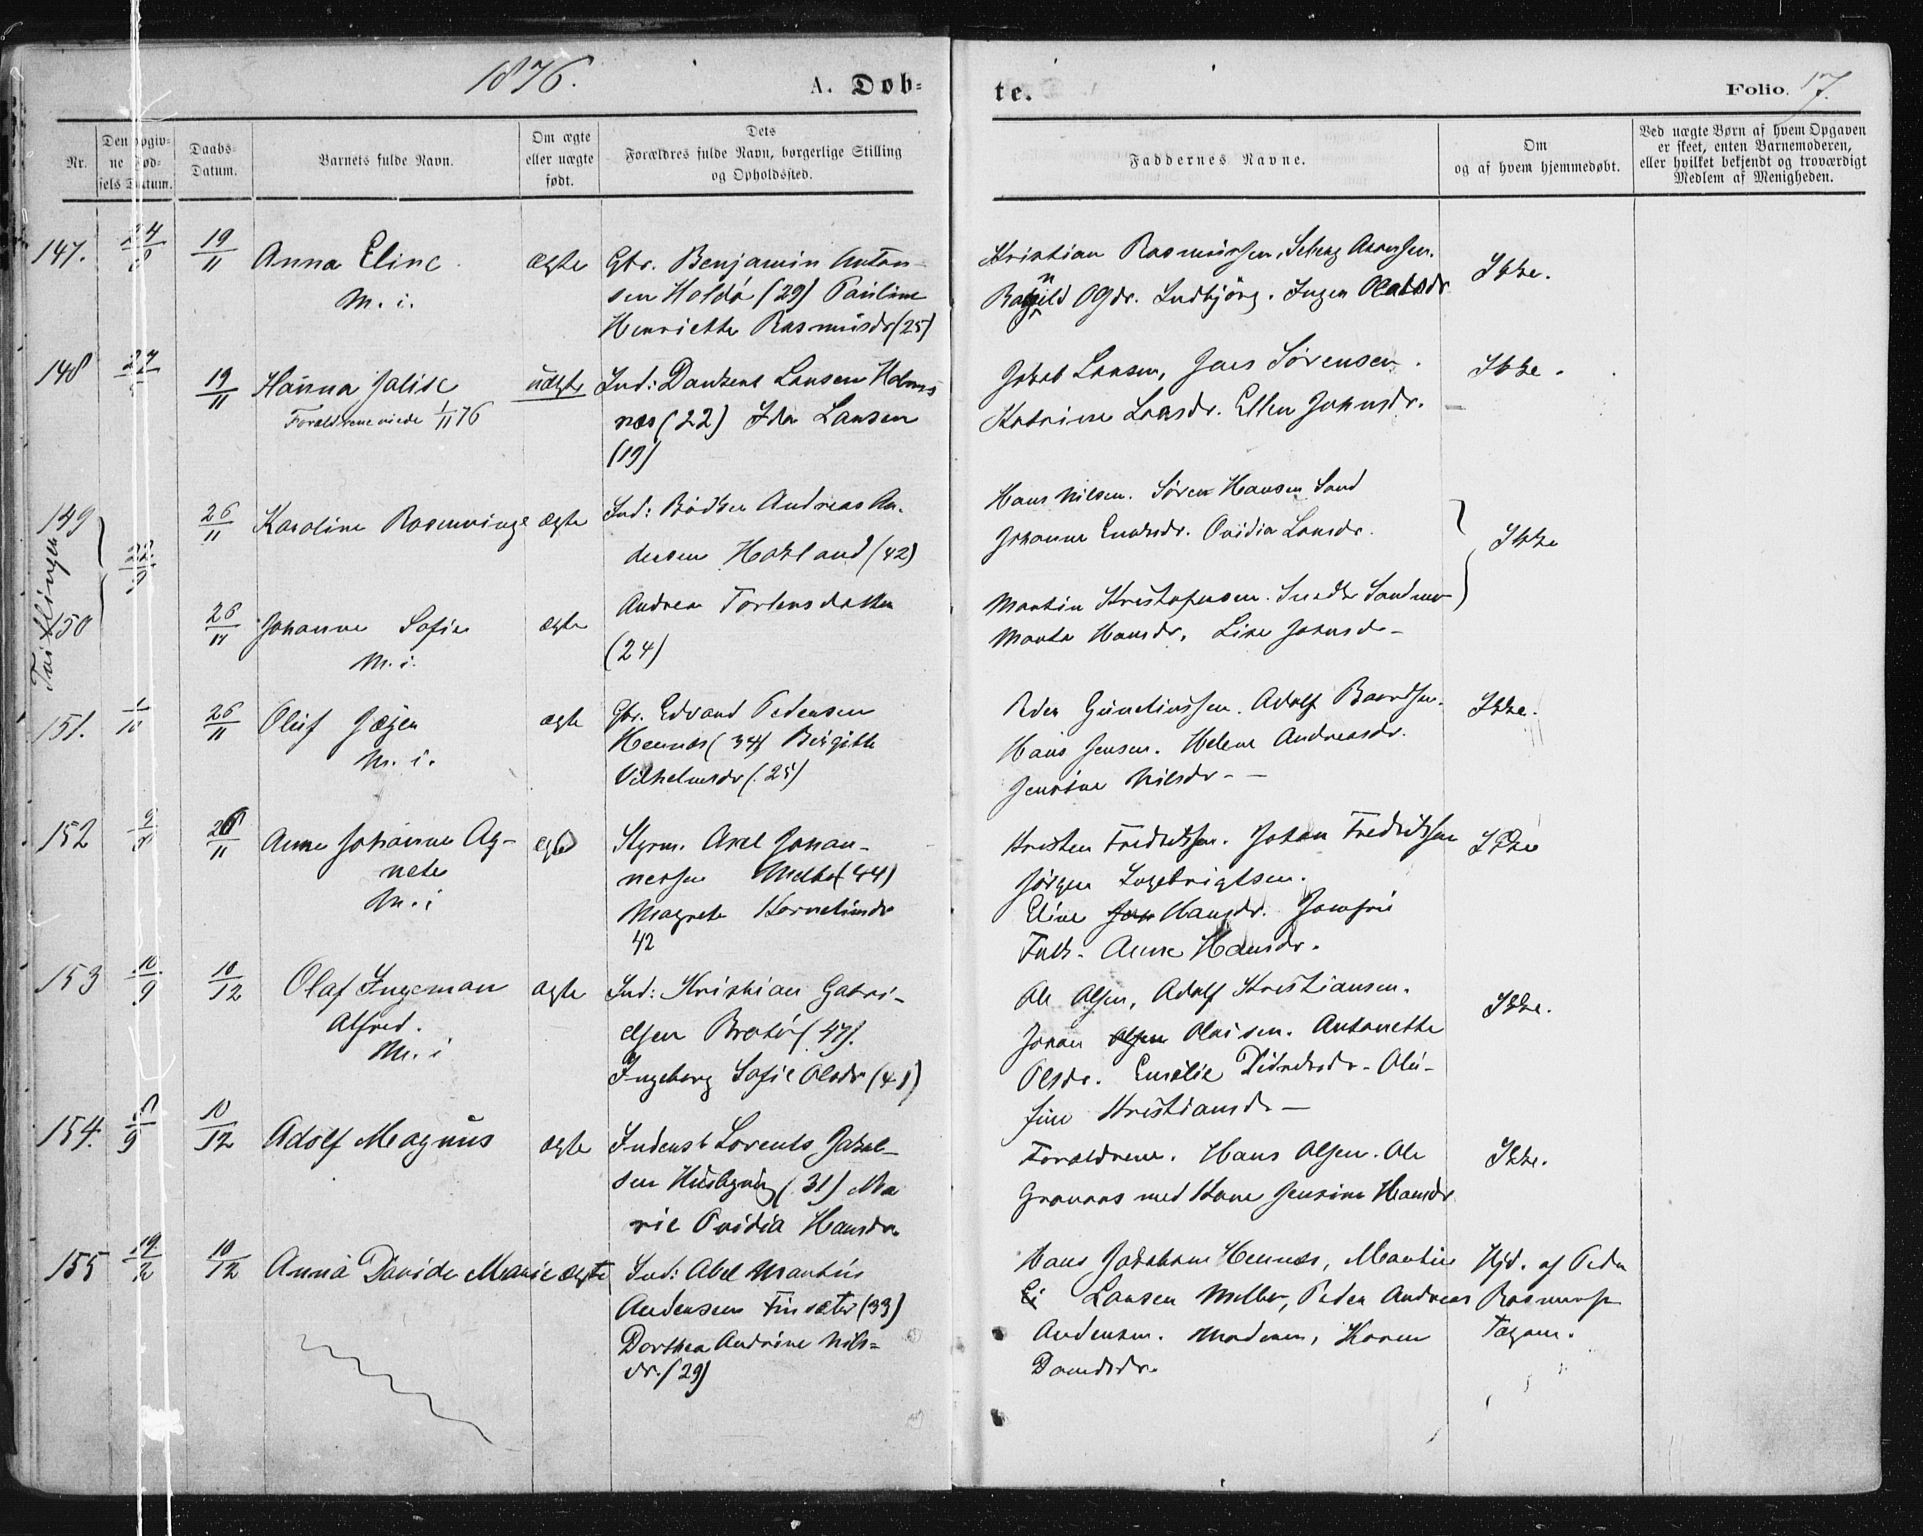 1876.
A. Døb-
te.
Folio. 17.
Nr.
Den opgiv-
ne Fød-
sels Datum.
Daabs-
Datum.
Barnets fulde Navn.
Om ægte
eller uægte
født.
Dets
Forældres fulde Navn, borgerlige Stilling
og Opholdssted.
Faddernes Navne.
Om
og af hvem hjemmedøbt.
Ved uægte Børn af hvem Opgaven
er skeet, enten Barnemoderen,
eller hvilket bekjendt og troværdigt
Medlem af Menigheden.
147.
19/11
Anna Eline
M. i.
ægte
Gbr. Benjamin Anton-
sen Holdø (29) Pauline
Henriette Rasmusdr (25)
Kristian Rasmussen,
Olsdr. Indbjörg. Inger Olabsdr
Ikke.
148
19/11
Hanna Jalise
Forældrene viede 1/11 76
uægte
Ind: Larsen Holm-
næs (22) Ida Larsen
(19)
Jakob Larsen, Jens Sørensen.
Katrine Larsdr. Ellen Johnsdr.
Ikke.
Tvillinger
149
26/11
Karoline Rosenvinge
ægte
Ind: Bødker Andreas An-
dersen Hokland (42)
Hans Nilsen. Sören Hansen Sand
Johanne Ovidia Larsdr.
Ikke
150
26/11
Johanne Sofie
M. i.
ægte
Andrea Torlensdatter
(24)
Martin Kristofersen.
Marta Hansdr. Line Johnsdr-
151.
26/11
Oluf Jæger
M. i.
ægte
Gbr. Edvard Pedersen
Hennes (34) Birgitte
Vilhelmsdr (25)
Peder Adolf Baardsen.
Hans Jensen. Helene Andreasdr.
Jensine Nilsdr-
Ikke.
152
26/11
Anne Johanne Ag-
nete
M. i
ægte
Styrm. Axel Johan-
nessen Melbo (44)
Magrete Korneliusdr
42
Kristen Fredriksen. Johan Fredriksen
Jörgen Ingebrigtsen.
Eline Hansdr. Jomfru
Falk. Anne Hansdr.
Ikke
153
10/9
10/12
Olaf Ingeman
Alfred.
M. i
ægte
Ind: Kristian Gabri-
elsen Brotø (47).
Ingeborg Sofie Olsdr (41)
Ole Olsen, Adolf Kristiansen.
Johan Olsen Olaisen. Antonette
Olsdr. Emelie Didriksdr- Olu-
fine Kristiansdr-
Ikke.
154.
10/12
Adolf Magnus
ægte
Inderst Lorents Jakob-
sen Husbyvig (31) Ma
rie Ovidia Hansdr.
Forældrene. Hans Olsen. Ole
med Kone Jensine Hansdr
Ikke.
155
19/2
10/12
Anna Davide Marie
ægte
Ind: Abel Martus
Andersen Finsæter (33)
Dorthea Andrine Nils-
dr. (29)
Hans Jakobsen Hennes, Martin
Larsen Melbo, Peder Andreas
Andersen. Moderen, Karen
Davidsdr.
Hjd. af Peder
Rasmussen